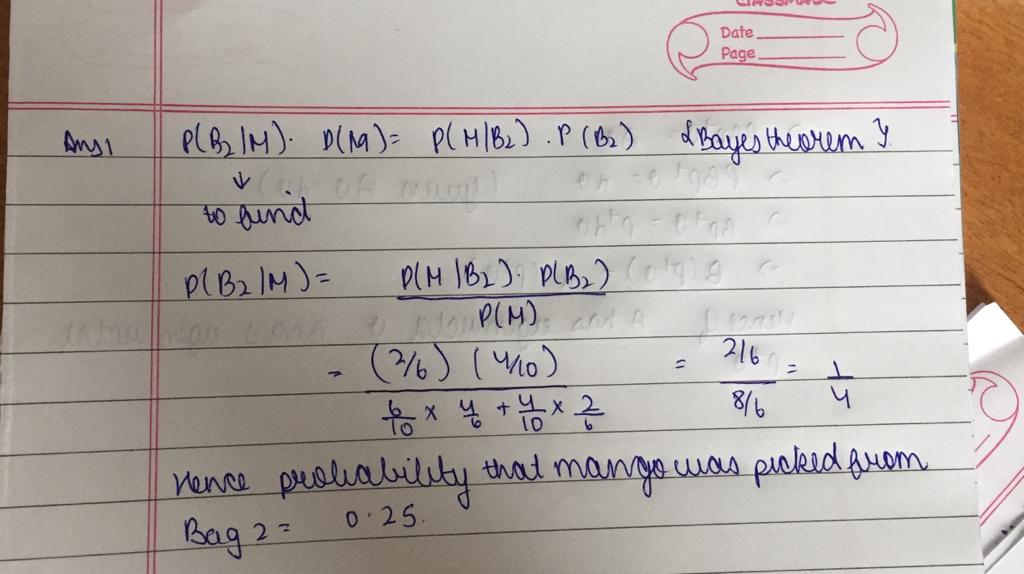 CLASSMATE
Date
Page
Ans1 P(B₂/M). P(M) = P(M/B₂). P(B₂) {Bayes theorem}
↓
to find
P(B₂/M) = P(M/B₂). P(B₂)
P(M)
= (2/6) (4/10) = 2/6 = 1
6/10 × 4/6 + 4/10 × 2/6 8/6 4
Hence probability that mango was picked from
Bag 2 = 0.25.